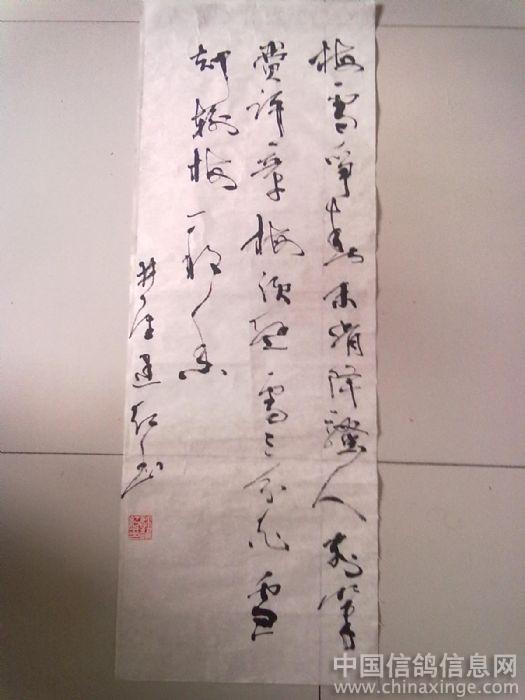 梅雪爭春未肯降騷人擱筆
費評章梅須遜雪三分白雪
却輸梅一段香
中国信鸽信息网
www.chinaxinge.com